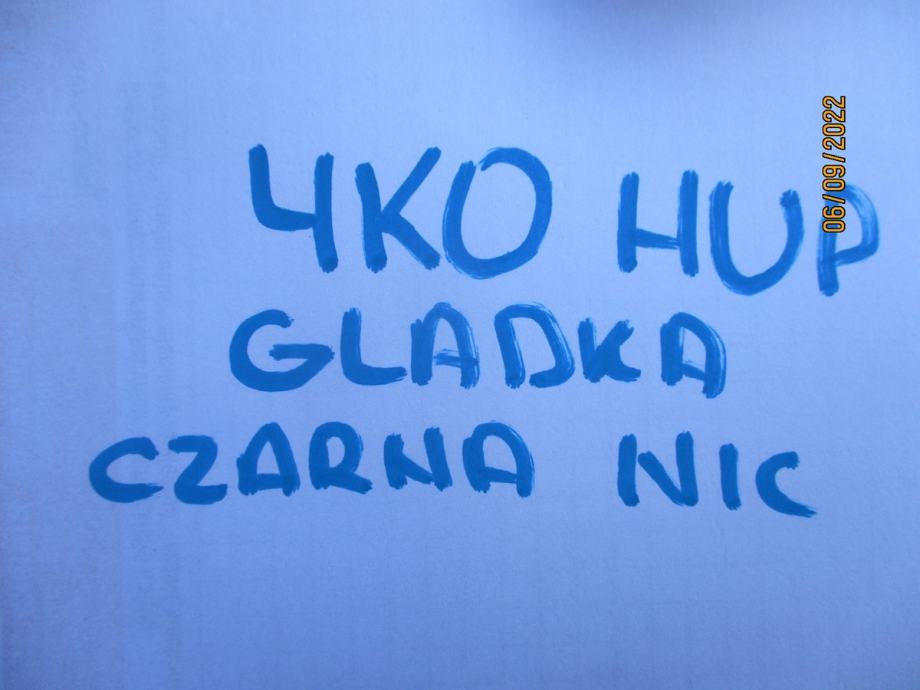 4KO HUP
GLADKA
CZARNA NIC
06/09/2022